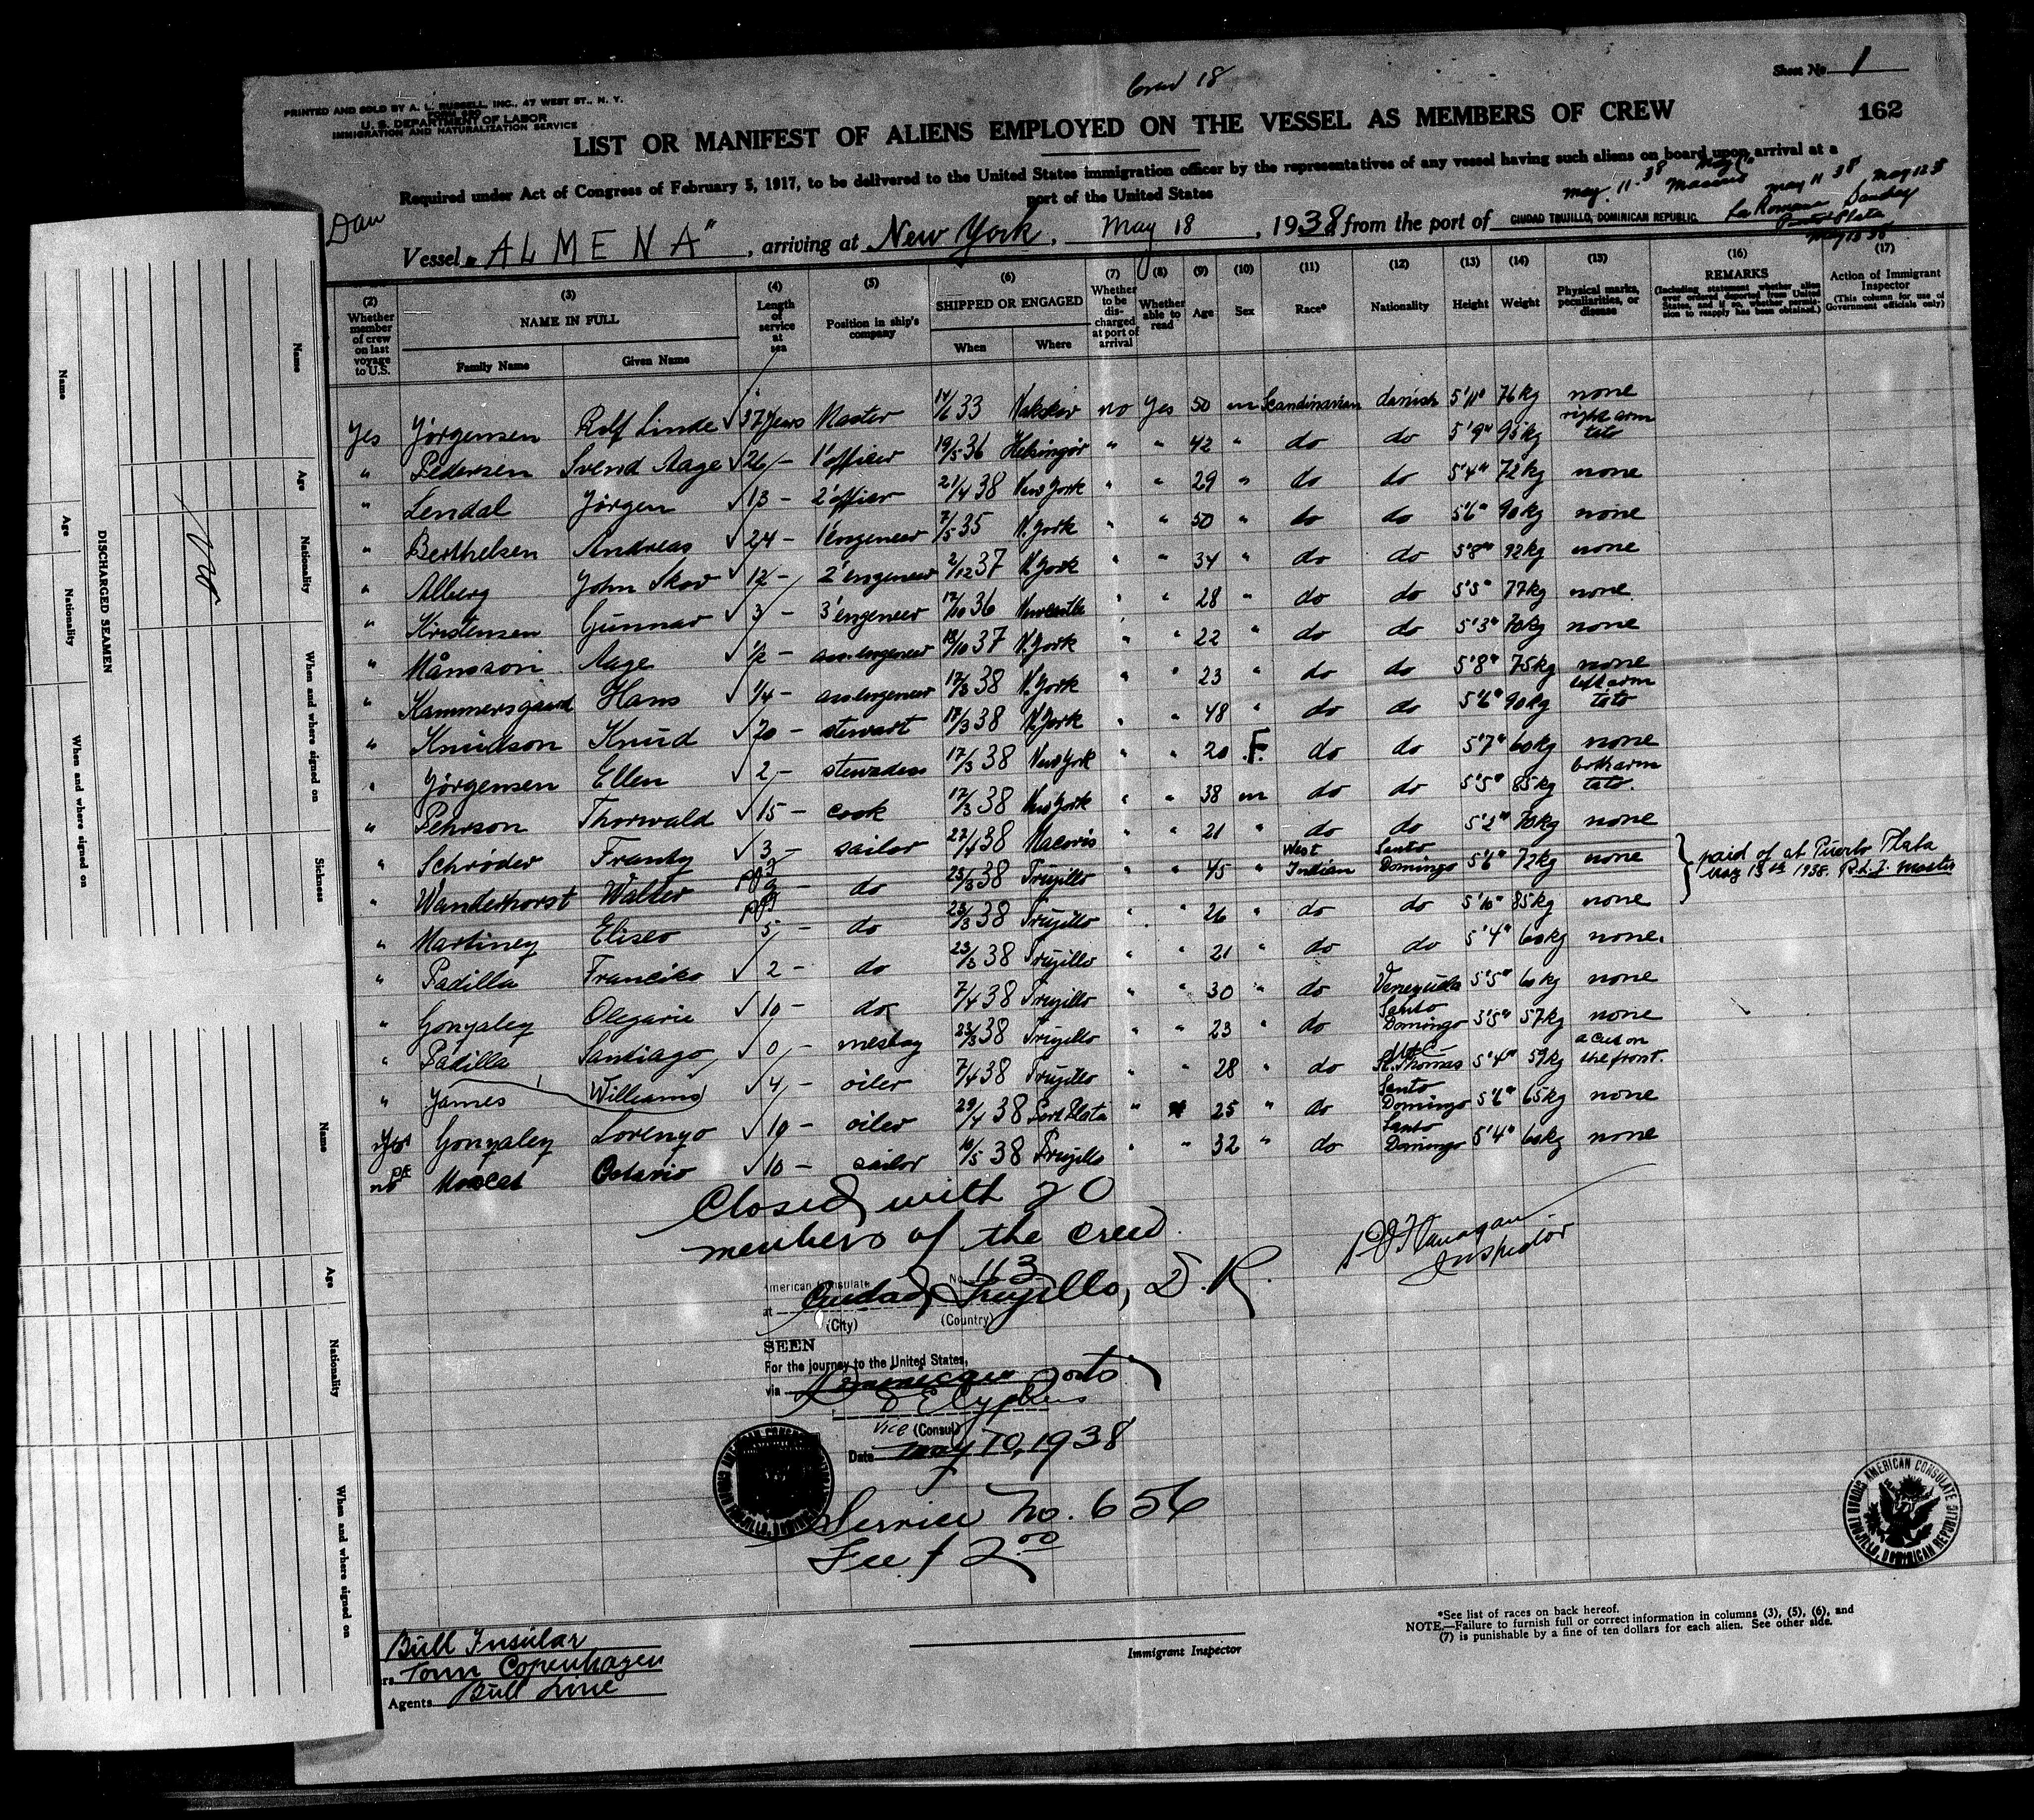 Crew 18
Sheet No 1
PRINTED AND SOLD BY A. L. RUSSELL, INC., 47 WEST ST., N. Y.
U. S. DEPARTMENT OF LABOR
IMMIGRATION AND NATURALIZATION SERVICE
162
LIST OR MANIFEST OF ALIENS EMPLOYED ON THE VESSEL AS MEMBERS OF CREW
Required under Act of Congress of February 5, 1917, to be delivered to the United States immigration officer by the representatives of any vessel having such aliens on board upon arrival at a
port of the United States
may 11-38 may 11 38 may 12 38
Dan
Vessel "ALMENA", arriving at New York, May 18, 1938 from the port of CIUDAD TRUJILLO, DOMINICAN REPUBLIC. La Romana
(2) Whether member of crew on last voyage to U.S.
(3) NAME IN FULL Family Name Given Name
(4) Length of service at sea
(5) Position in ship's company
(6) SHIPPED OR ENGAGED When Where
(7) Whether to be discharged at port of arrival
(8) Whether able to read
(9) Age
(10) Sex
(11) Race*
(12) Nationality
(13) Height
(14) Weight
(15) Physical marks, peculiarities, or disease
(16) REMARKS (Including statement whether alien ever ordered deported from United States, and if so, whether permission to reapply has been obtained.)
(17) Action of Immigrant Inspector (This column for use of Government officials only)
Yes Jörgensen Rolf Linde 37 years Master 14/6 33 Nakskov no Yes 50 m Scandinavian danish 5'11" 76kg none
" Pedersen Svend Aage 26 - 1'officer 19/5 36 Helsingör " " 42 " do do 5'9" 95kg right arm tato
" Lendal Jörgen 13 - 2'officer 21/4 38 New York " " 29 " do do 5'4" 72kg none
" Berthelsen Andreas 24 - 1'engeneer 7/5 35 N.York " " 50 " do do 5'6" 90kg none
" Alberg John Skov 12 - 2'engeneer 2/12 37 N.York " " 34 " do do 5'8" 92kg none
" Kristensen Gunnar 3 - 3'engeneer 12/10 36 Newcastle " " 28 " do do 5'5" 77kg none
" Månsson Aage 1/2 - ass.engeneer 18/10 37 N.York " " 22 " do do 5'3" 70kg none
" Kammersgaard Hans 1/4 - ass.engeneer 17/3 38 N.York " " 23 " do do 5'8" 75kg none
" Knudson Knud 20 - stewart 17/3 38 N.York " " 48 " do do 5'6" 90kg left arm tato
" Jörgensen Ellen 2 - stewadess 17/3 38 New York " " 20 F. do do 5'7" 60kg none
" Pehrson Thorwald 15 - cook 17/3 38 New York " " 38 m do do 5'5" 85kg both arm tato.
" Schröder Frantz 3 - sailor 27/4 38 Macoris " " 21 " do do 5'2" 70kg none
" Wanderhorst Walter - do 23/3 38 Trujillo " " 45 " West Indian Santo Domingo 5'6" 72kg none
" Martinez Eliseo 5 - do 23/3 38 Trujillo " " 26 " do do 5'10" 85kg none
paid of at Puerto Plata
May 13th 1938. R.L.J. Master
" Padilla Francisko 2 - do 23/3 38 Trujillo " " 21 " do do 5'4" 60kg none.
" Gonzalez Olegario 10 - do 7/4 38 Trujillo " " 30 " do Venezuela 5'5" 60kg none
" Padilla Santiago 0 - mesboy 23/3 38 Trujillo " " 23 " do Santo Domingo 5'5" 57kg none
" James Williams 4 - oiler 7/4 38 Trujillo " " 28 " do St. Thomas 5'4" 59kg a cut on the front.
Yes Gonzalez Lorenzo 10 - oiler 29/4 38 Port Plata " 25 " do Santo Domingo 5'6" 65kg none
no Octavio 10 - sailor 10/5 38 Trujillo " " 32 " do Santo Domingo 5'4" 60kg none
Closed with 20
members of the crew.
Inspector
American Consulate No. 113
at Ciudad Trujillo, D.R.
(City) (Country)
SEEN
For the journey to the United States,
via Dominican Ports
Vice (Consul)
Date May 10, 1938
Service No. 656
Fee $ 2.00
AMERICAN CONSULATE CIUDAD TRUJILLO, DOMINICAN REPUBLIC
*See list of races on back hereof.
NOTE.—Failure to furnish full or correct information in columns (3), (5), (6), and
(7) is punishable by a fine of ten dollars for each alien. See other side.
Immigrant Inspector
Bull Insular
Torm Copenhagen
Agents Bull Line
DISCHARGED SEAMEN
Name
Age
Nationality
When and where signed on
Name
Age
Nationality
When and where signed on
Sickness
Name
Age
Nationality
When and where signed on
No